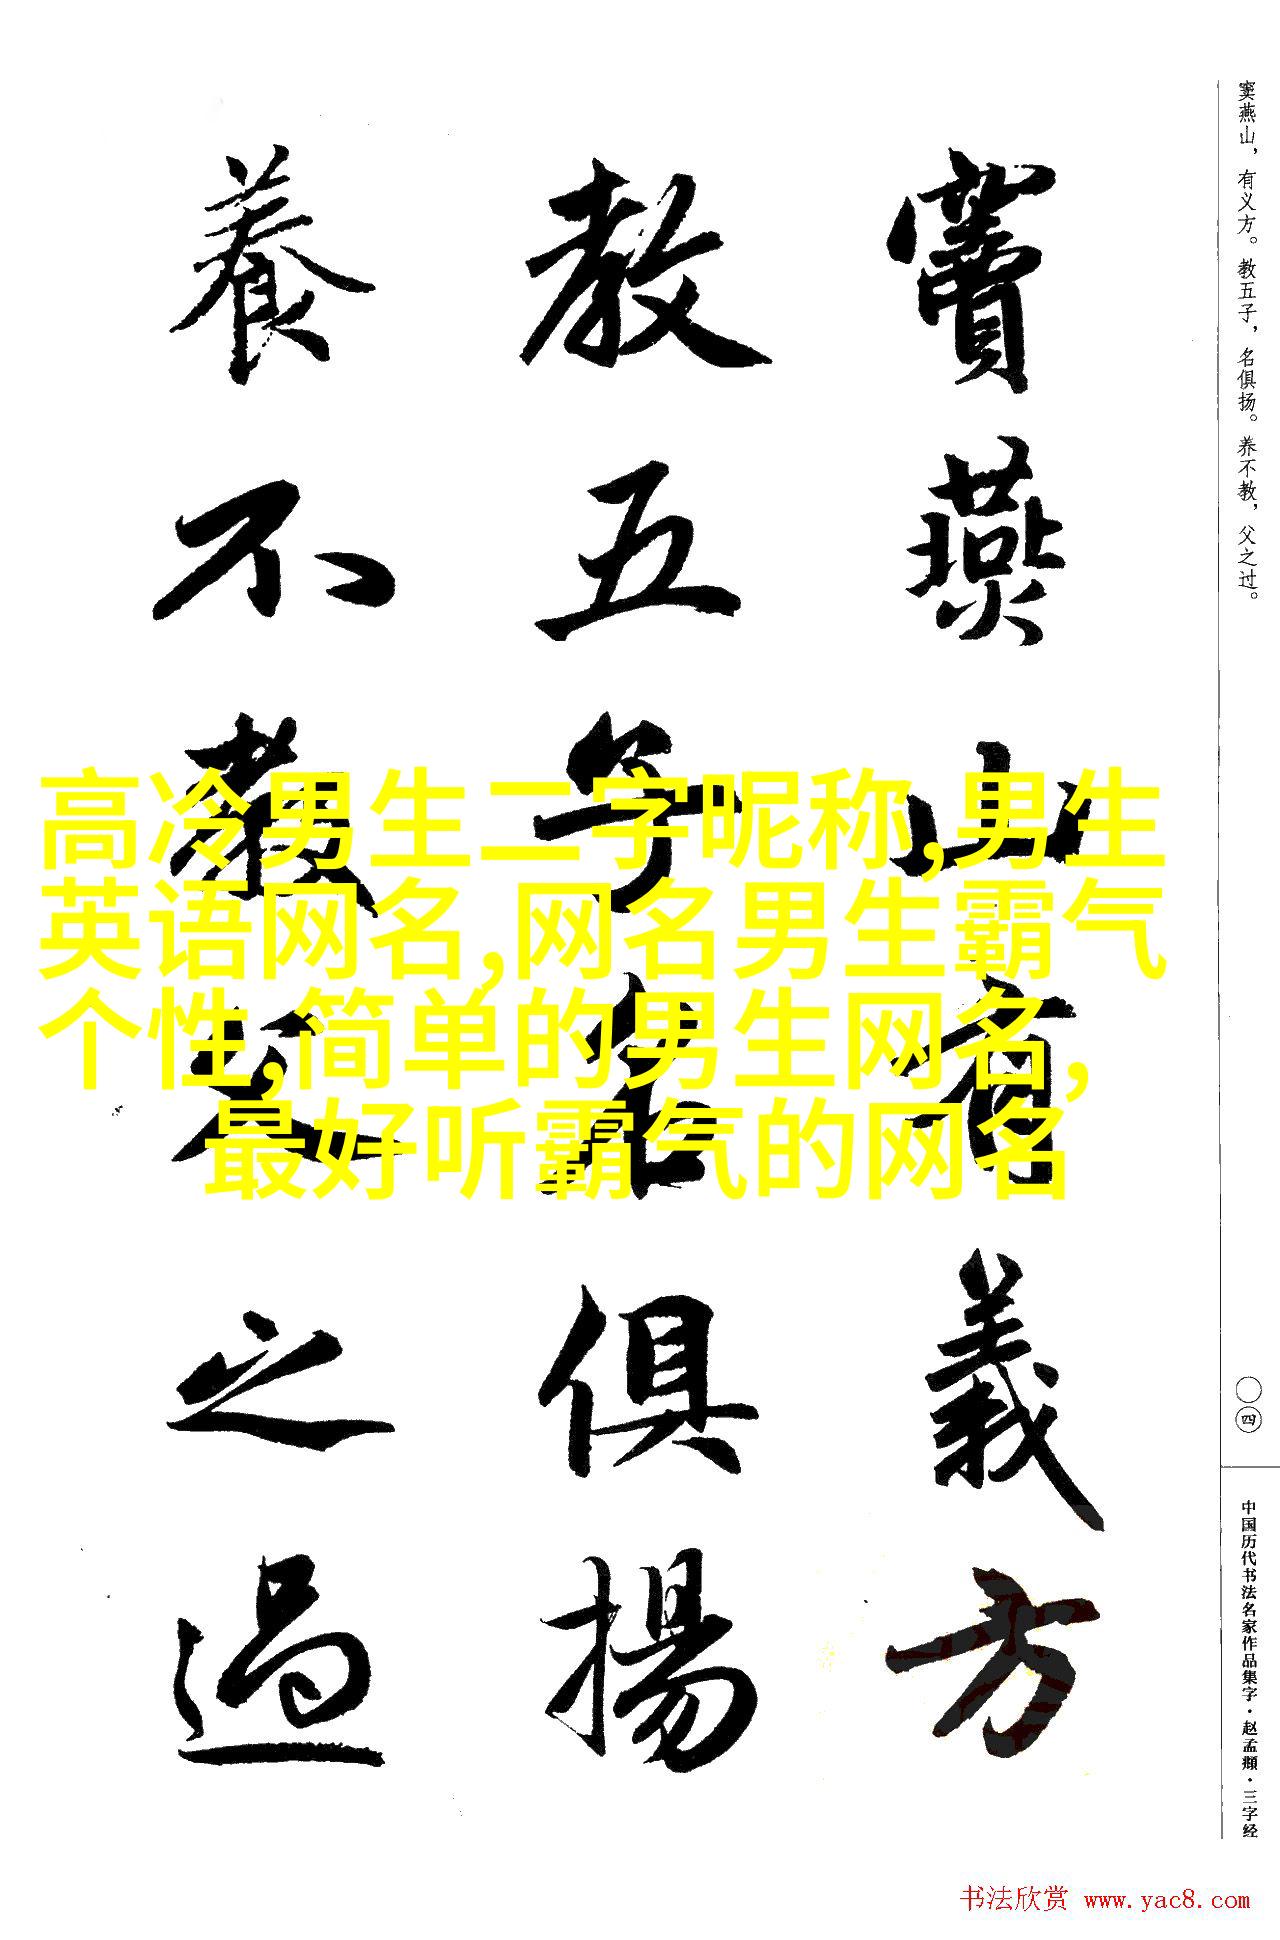 窦燕山，有义方。教五子，名俱扬。养不教，父之过。
竇燕山有義方
教五子名俱揚
養不教父之過
高冷男生二字昵称,男生
英语网名,网名男生霸气
个性,简单的男生网名,
最好听霸气的网名
〇四
中国历代书法名家作品集字·赵孟頫·三字经
书法欣赏 www.yac8.com